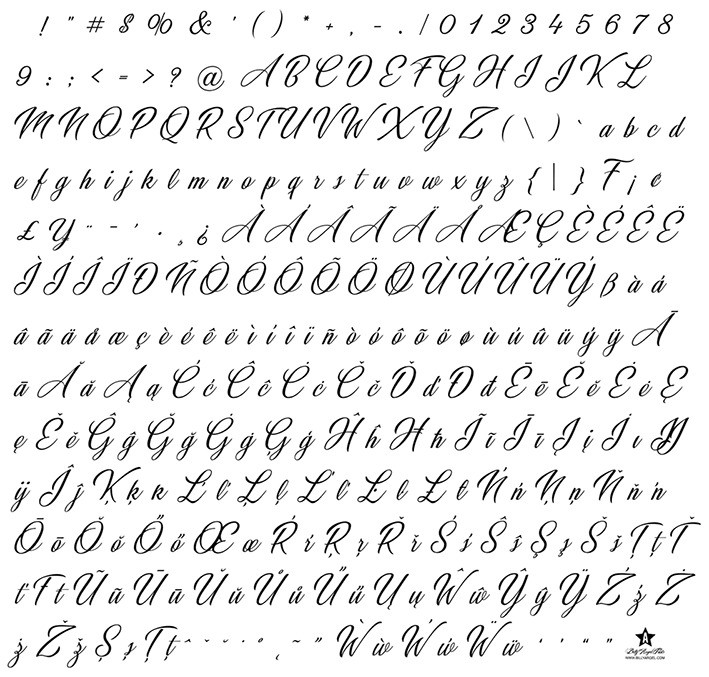 ! " # $ % & ' ( ) * + , - . / 0 1 2 3 4 5 6 7 8
9 : ; < = > ? @ A B C D E F G H I J K L
M N O P Q R S T U V W X Y Z ( \ ) ` a b c d
e f g h i j k l m n o p q r s t u v w x y z { | } F ¡ ¢
£ ¥ ¨ ¯ ´ · ¸ ¿ À Á Â Ã Ä Å Æ Ç È É Ê Ë
Ì Í Î Ï Ð Ñ Ò Ó Ô Õ Ö Ø Ù Ú Û Ü Ý ß à á
â ã ä å æ ç è é ê ë ì í î ï ñ ò ó ô õ ö ø ù ú û ü ý ÿ Ā
ā Ă ă Ą ą Ć ć Ĉ ĉ Ċ ċ Č č Ď ď Đ đ Ē ē Ĕ ĕ Ė ė Ę
ę Ě ě Ĝ ĝ Ğ ğ Ġ ġ Ģ ģ Ĥ ĥ Ħ ħ Ĩ ĩ Ī ī Į į İ ı Ĳ
ĳ Ĵ ĵ Ķ ķ ĸ Ĺ ĺ Ļ ļ Ľ ľ Ŀ ŀ Ł ł Ń ń Ņ ņ Ň ň ŉ
Ō ō Ŏ ŏ Ő ő Œ œ Ŕ ŕ Ŗ ŗ Ř ř Ś ś Ŝ ŝ Ş ş Š š Ţ ţ Ť
ť Ŧ ŧ Ũ ũ Ū ū Ŭ ŭ Ů ů Ű ű Ų ų Ŵ ŵ Ŷ ŷ Ÿ Ź ź Ż
ż Ž ž Ș ș Ț ț ˆ ˇ ˘ ˙ ˚ ˛ ˜ ˝ Ẁ ẁ Ẃ ẃ Ẅ ẅ ‘ ’ “ ”
A
Billy Argel Fonts
WWW.BILLYARGEL.COM